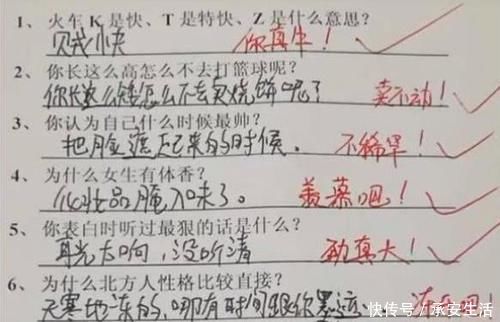 1、火车 K 是快、T 是特快、Z 是什么意思?
贼快 你真牛!
2、你长这么高怎么不去打篮球呢?
你长这么矮怎么不去卖烧饼呢? 卖不动!
3、你认为自己什么时候最帅?
把脸遮起来的时候。 不稀罕!
4、为什么女生有体香?
化妆品腌入味了。 羡慕吧!
5、你表白时听过最狠的话是什么?
耳光太响,没听清 劲真大!
6、为什么北方人性格比较直接?
天寒地冻的,哪有时间跟你墨迹
快传号/承安生活